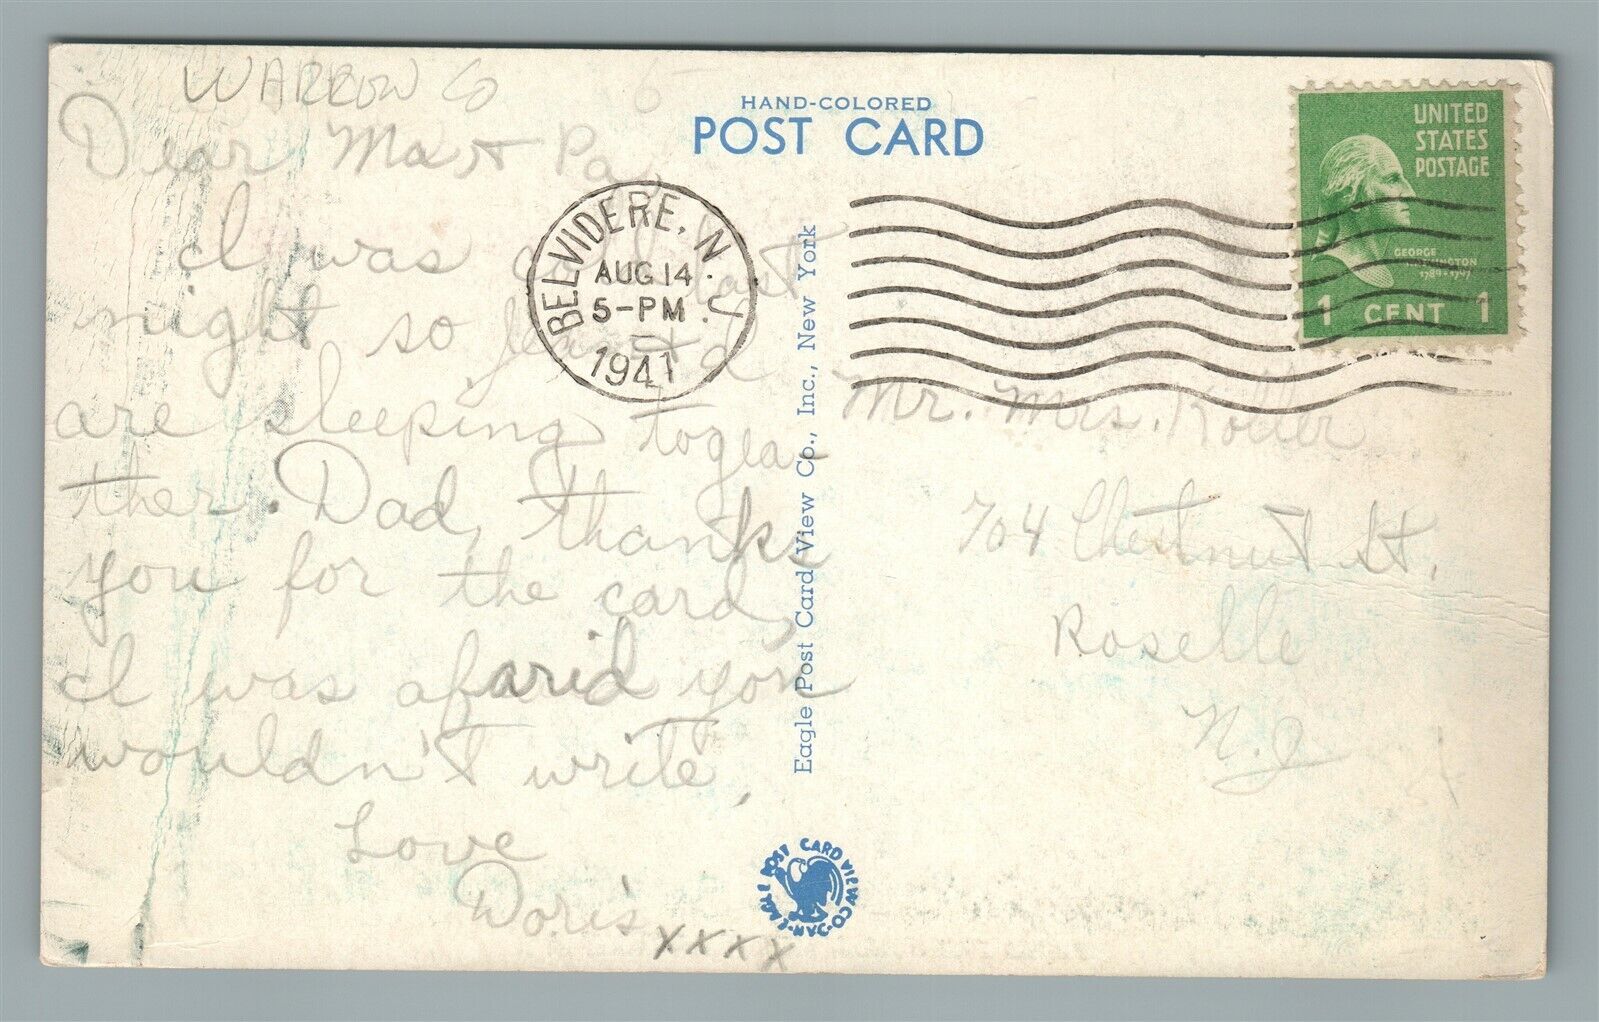 WARREN Co
5
Dear Ma + Pa,
I was cold last
night so
are sleeping togea-
ther. Dad, thanks
you for the card,
I was afarid you
wouldn't write,
Love
Doris
xxxx
HAND-COLORED
POST CARD
BELVIDERE, N.J.
AUG 14
5-PM
1941
Eagle Post Card View Co., Inc., New York
EAGLE POST CARD VIEW CO. N.Y.C.
UNITED
STATES
POSTAGE
GEORGE
WASHINGTON
1789-1797
1 CENT 1
Mr. Mrs. Koller
704 Chestnut St.
Roselle
N.J.